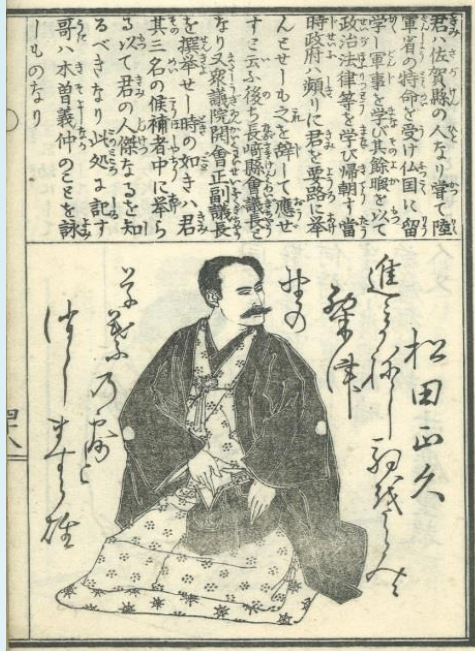 君ハ佐賀縣の人なり甞て陸
軍省の特命を受け仏国に留
学し軍事を学び其餘暇を以て
政治法律等を学び帰朝す當
時政府ハ頻りに君を要路に挙
んとせしも之を辞して應せ
すと云ふ後ち長崎縣會議長と
なり又衆議院開會正副議長
を撰挙せし時の如きハ君
其三名の候補者中に挙ら
る以て君の人傑なるを知
るべきなり此処に記す
哥ハ木曽義仲のことを詠
しものなり
松田正久
進
粟津
野の
草葉乃露と
消し
四八